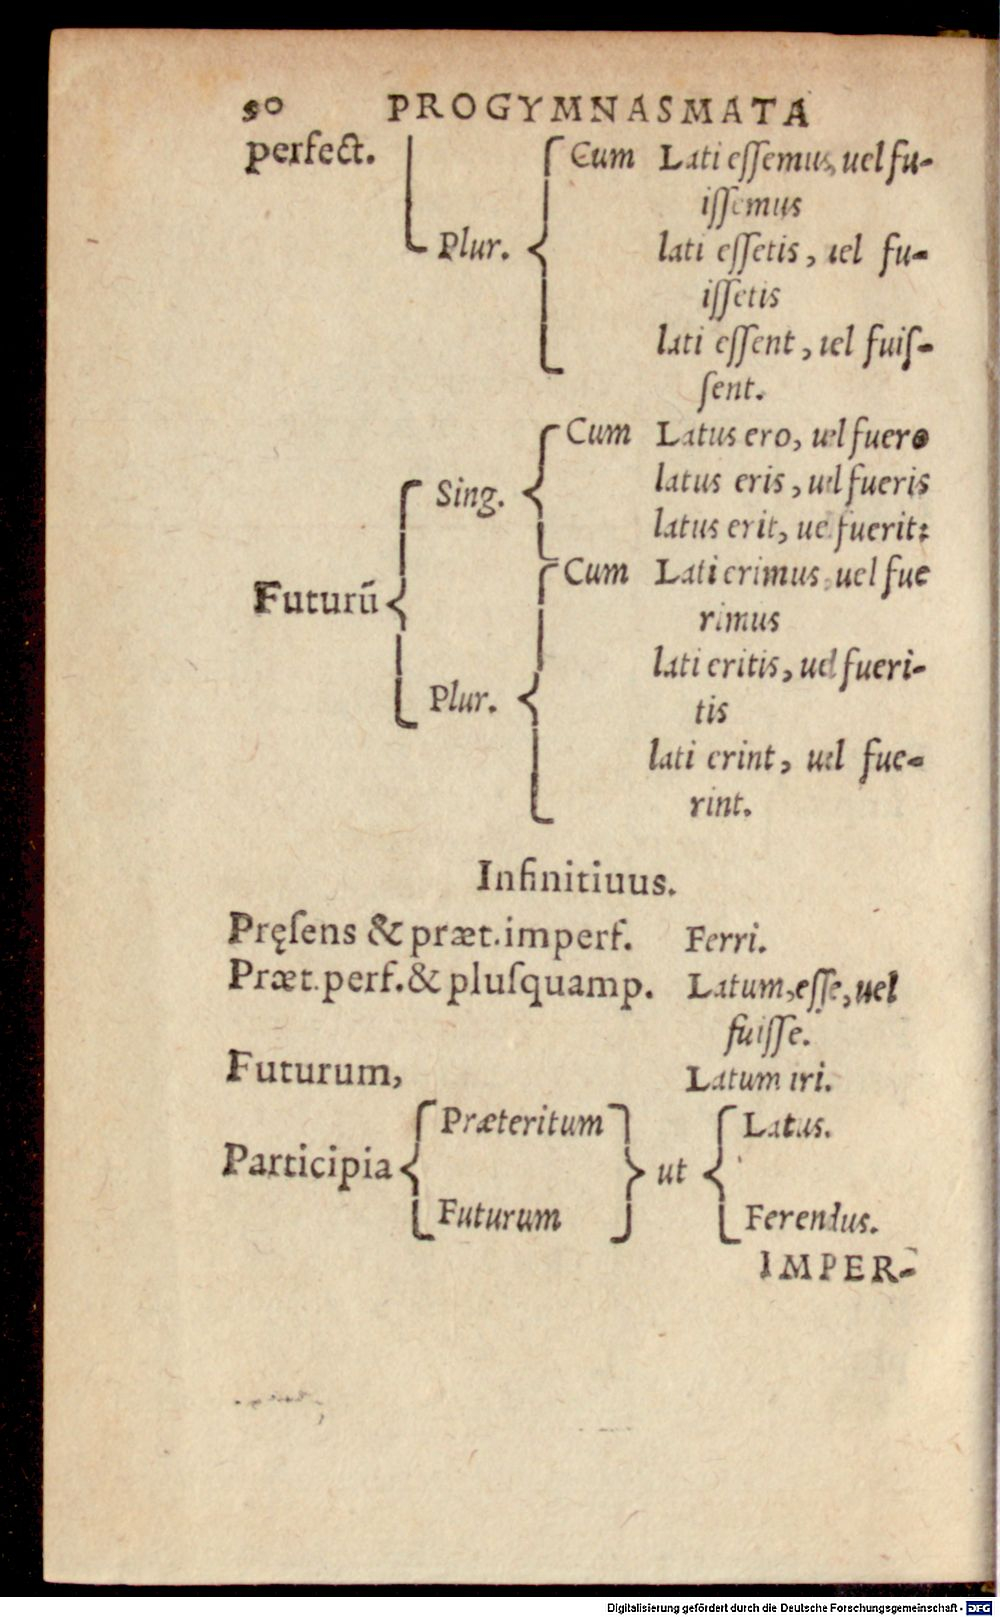 50 PROGYMNASMATA
perfect. Cum Lati eſſemus, uel fu-
iſſemus
Plur. lati eſſetis, uel fu-
iſſetis
lati eſſent, uel fuiſ-
ſent.
Cum Latus ero, uel fuero
Sing. latus eris, uel fueris
latus erit, uel fuerit:
Futurū Cum Lati erimus, uel fue
rimus
lati eritis, uel fueri-
Plur. tis
lati erint, uel fue-
rint.
Infinitiuus.
Pręſens & præt. imperf. Ferri.
Præt. perf. & pluſquamp. Latum, eſſe, uel
fuiſſe.
Futurum, Latum iri.
Præteritum Latus.
Participia ut
Futurum Ferendus.
IMPER-
Digitalisierung gefördert durch die Deutsche Forschungsgemeinschaft - DFG